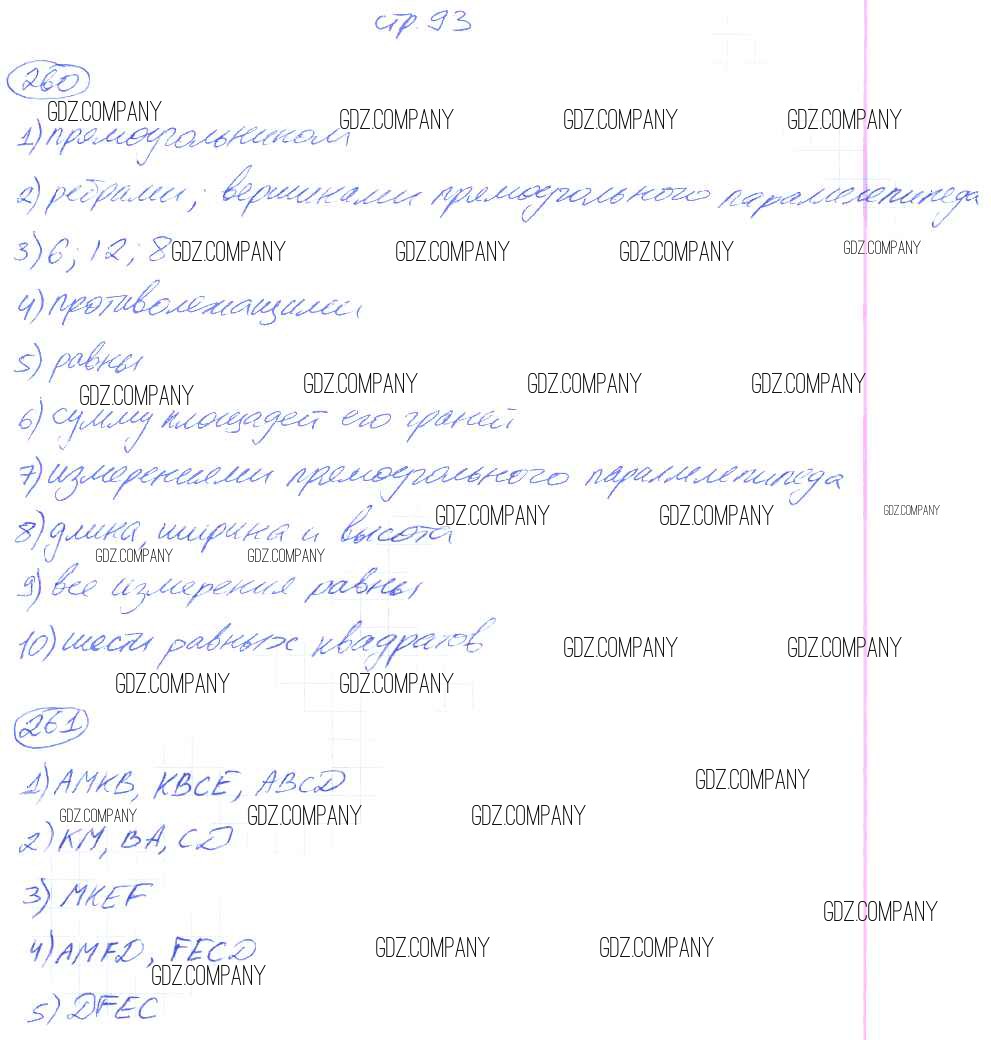 стр. 93
260
GDZ.COMPANY
GDZ.COMPANY GDZ.COMPANY GDZ.COMPANY
1) прямоугольником
2) ребрами; вершинами прямоугольного параллелепипеда
3) 6; 12; 8 GDZ.COMPANY GDZ.COMPANY GDZ.COMPANY GDZ.COMPANY
4) противолежащими
5) равны
GDZ.COMPANY GDZ.COMPANY GDZ.COMPANY GDZ.COMPANY
6) сумму площадей его граней
7) измерениями прямоугольного параллелепипеда
GDZ.COMPANY GDZ.COMPANY GDZ.COMPANY
8) длина, ширина и высота
GDZ.COMPANY GDZ.COMPANY
9) все измерения равны
10) шести равных квадратов
GDZ.COMPANY GDZ.COMPANY
GDZ.COMPANY GDZ.COMPANY
261
1) AMKB, KBCE, ABCD
GDZ.COMPANY
GDZ.COMPANY GDZ.COMPANY GDZ.COMPANY
2) KM, BA, CD
3) MKEF
GDZ.COMPANY
4) AMFD, FECD
GDZ.COMPANY GDZ.COMPANY
GDZ.COMPANY
5) DFEC